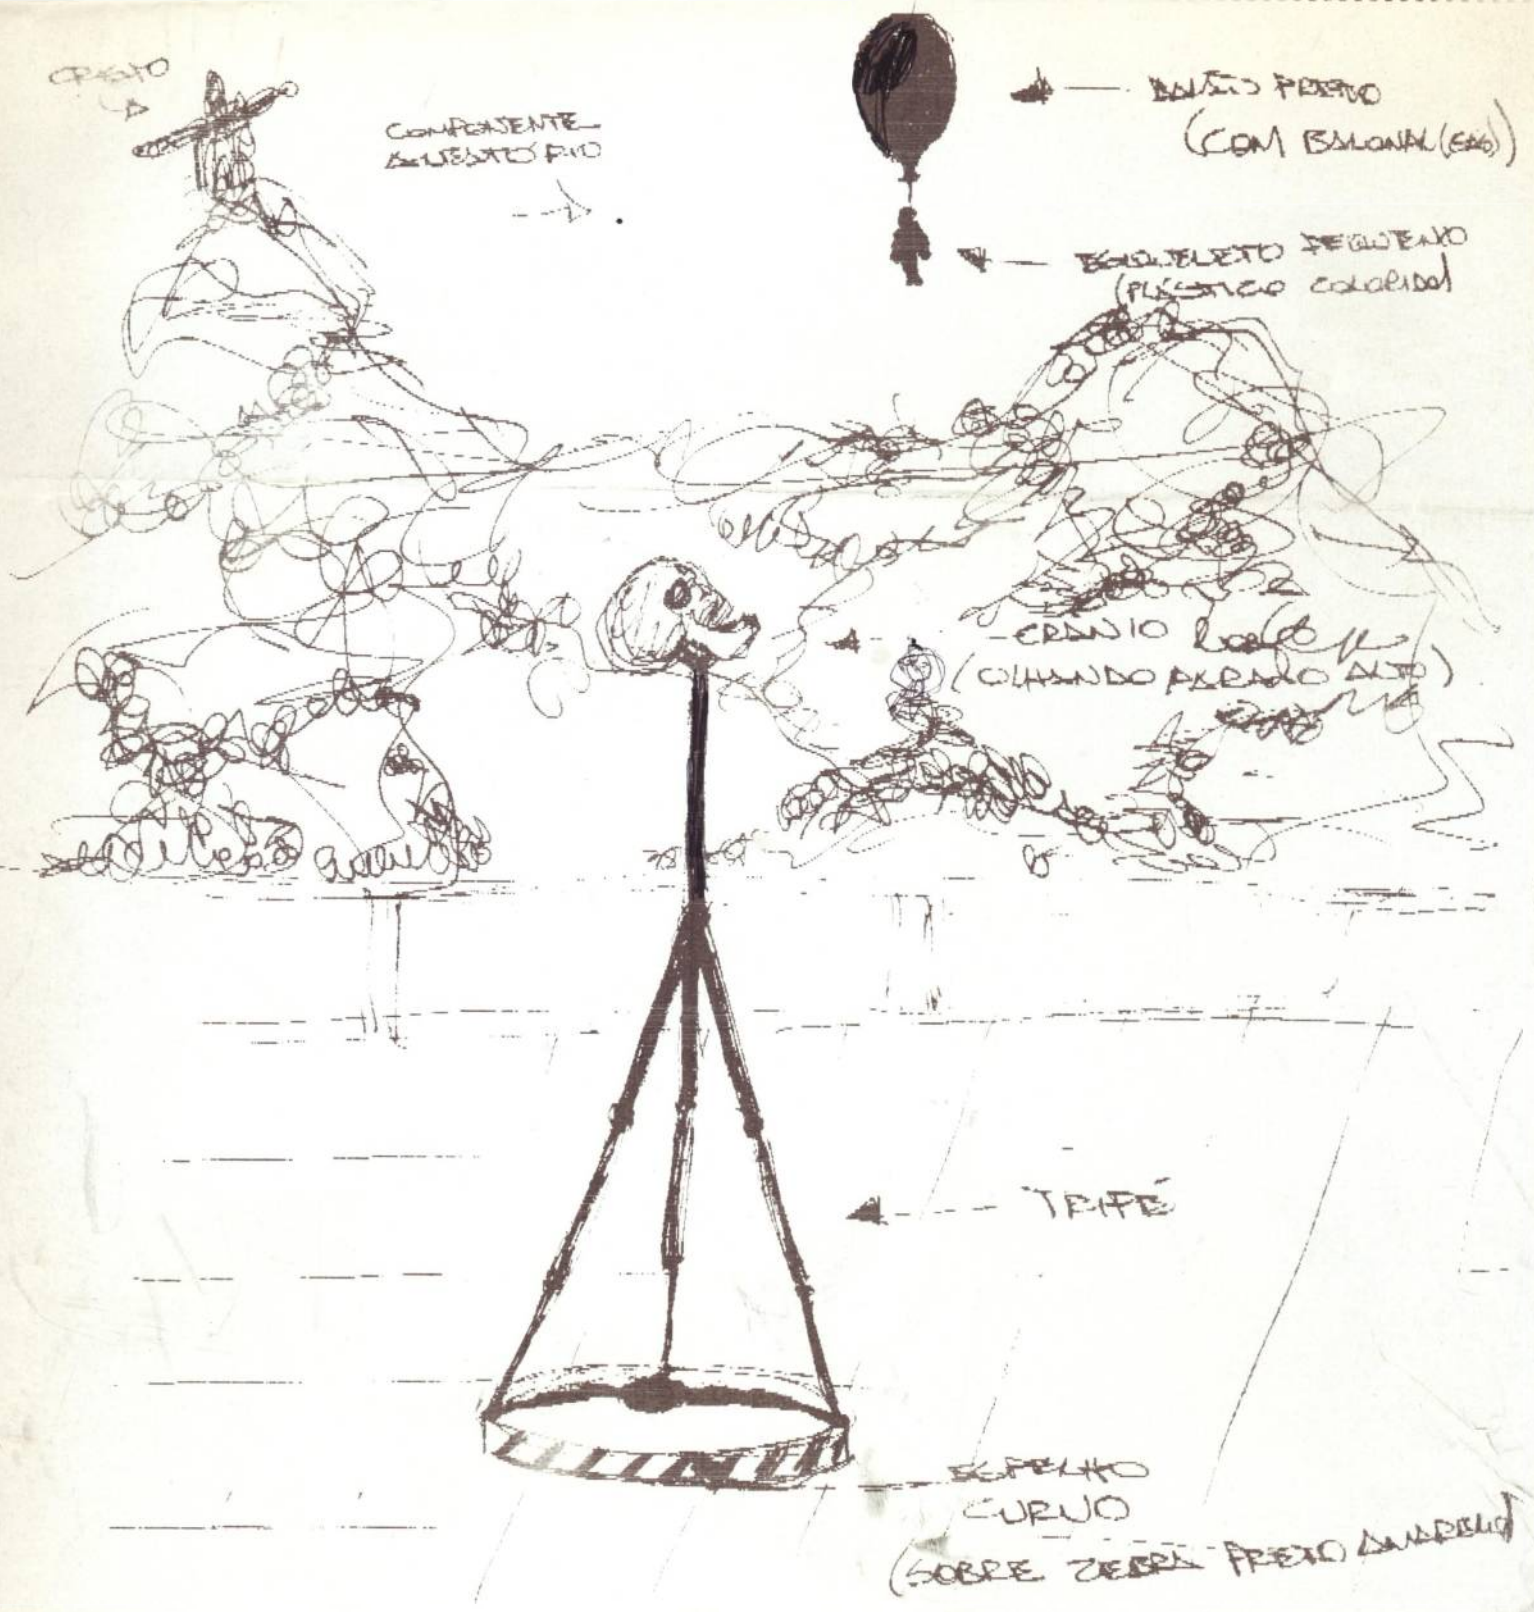 CRISTO
COMPONENTE
ALEATÓRIO
BALÃO PRETO
(COM BALONAL (GÁS))
ESQUELETO PEQUENO
(PLÁSTICO COLORIDO)
CRÂNIO
(OLHANDO PARA O ALTO)
TRIPÉ
ESPELHO
CURVO
(SOBRE ZEBRA PRETO AMARELO)